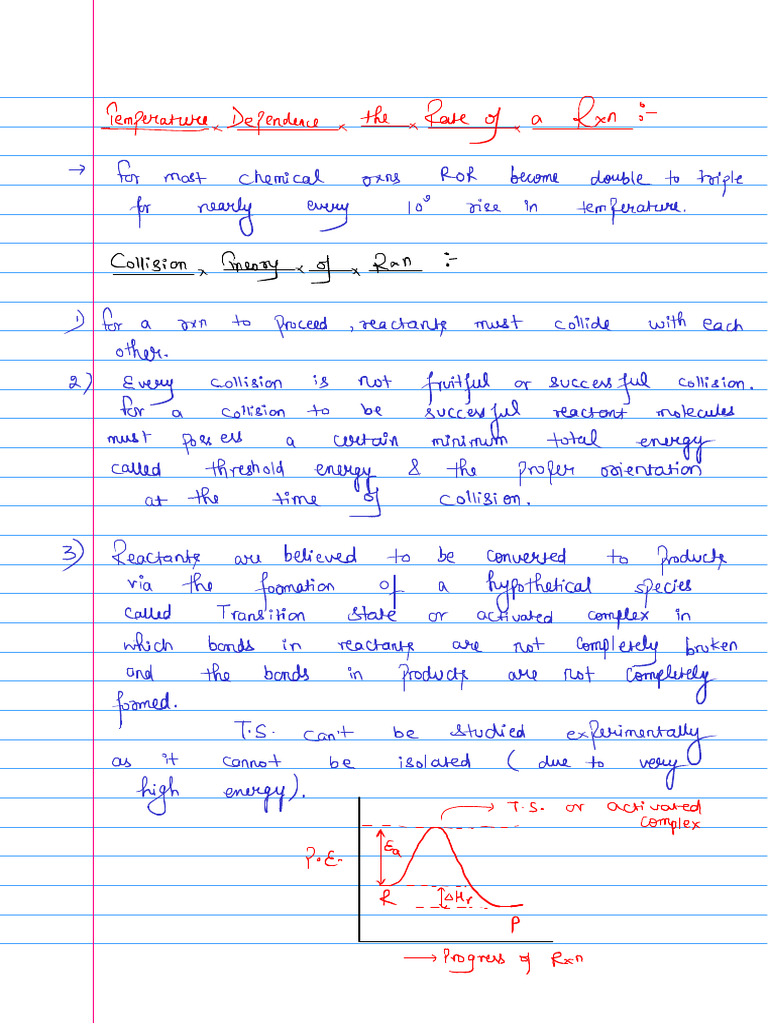 Temperature Dependence the Rate of a Rxn :-
→ for most chemical rxns ROR become double to triple
for nearly every 10° rise in temperature.
Collision Theory of Rxn :-
1) for a rxn to proceed, reactants must collide with each
other.
2) Every collision is not fruitful or successful collision.
for a collision to be successful reactant molecules
must posess a certain minimum total energy
called threshold energy & the proper orientation
at the time of collision.
3) Reactants are believed to be converted to products
via the formation of a hypothetical species
called Transition state or activated complex in
which bonds in reactants are not completely broken
and the bonds in products are not completely
formed.
T.S. can't be studied experimentally
as it cannot be isolated (due to very
high energy).
→ T.S. or activated
complex
P.E.
Ea
R
ΔHr
P
→ Progress of Rxn